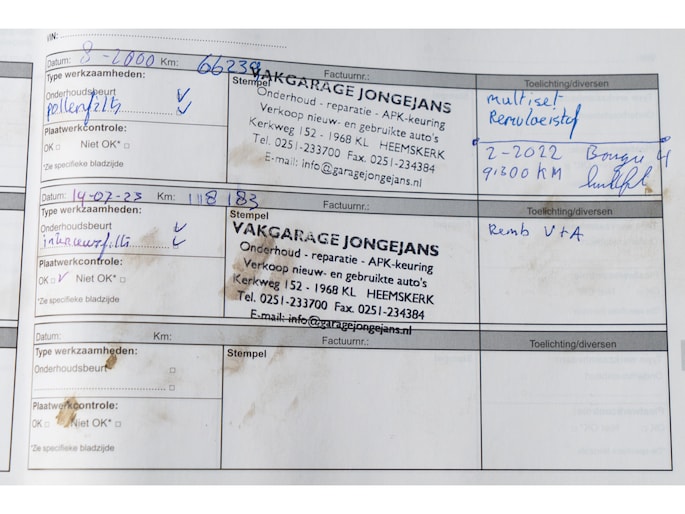 VIN:
Datum: 8-2000 Km: 66239 Factuurnr.:
Type werkzaamheden: Stempel Toelichting/diversen
Onderhoudsbeurt
pollenfilts
Plaatwerkcontrole:
OK Niet OK*
*Zie specifieke bladzijde
VAKGARAGE JONGEJANS
Onderhoud - reparatie - APK-keuring
Verkoop nieuw- en gebruikte auto's
Kerkweg 152 - 1968 KL HEEMSKERK
Tel. 0251-233700 Fax. 0251-234384
E-mail: info@garagejongejans.nl
multiset
Remvloeistof
2-2022 Bougie 4
9.300 KM
Datum: 14-07-23 Km: 118 183 Factuurnr.:
Type werkzaamheden: Stempel Toelichting/diversen
Onderhoudsbeurt
interieurfilts
Plaatwerkcontrole:
OK Niet OK*
*Zie specifieke bladzijde
VAKGARAGE JONGEJANS
Onderhoud - reparatie - APK-keuring
Verkoop nieuw- en gebruikte auto's
Kerkweg 152 - 1968 KL HEEMSKERK
Tel. 0251-233700 Fax. 0251-234384
E-mail: info@garagejongejans.nl
Remb V+A
Datum: Km: Factuurnr.:
Type werkzaamheden: Stempel Toelichting/diversen
Onderhoudsbeurt
Plaatwerkcontrole:
OK Niet OK*
*Zie specifieke bladzijde